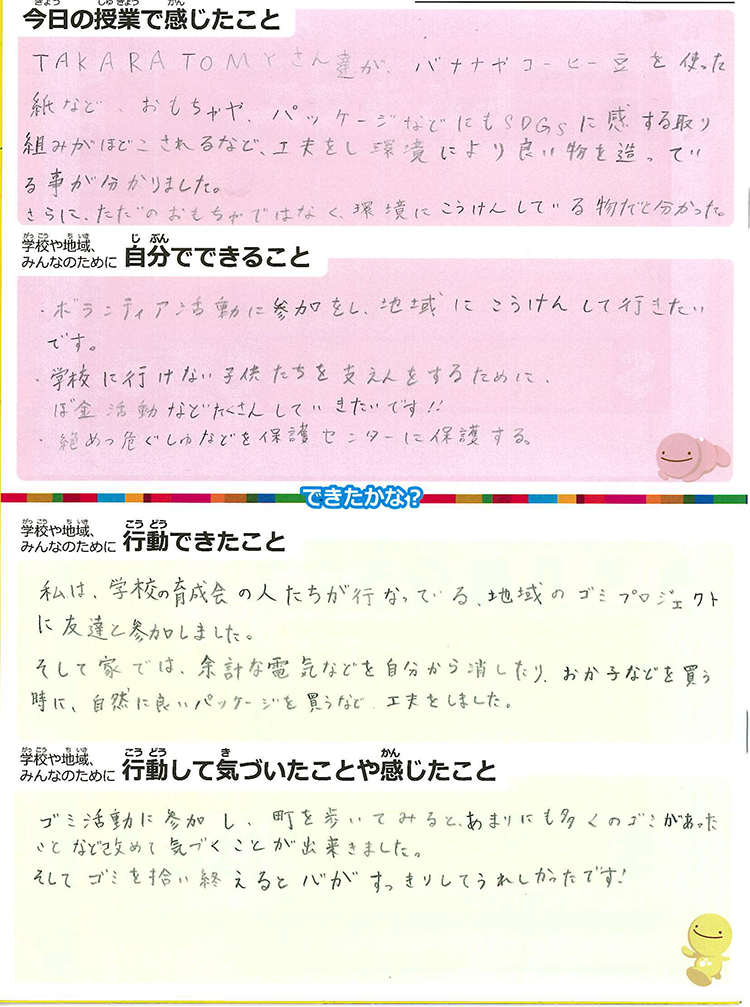 今日の授業で感じたこと
TAKARATOMYさん達が、バナナやコーヒー豆を使った
紙など、おもちゃや、パッケージなどにもSDGsに感する取り
組みがほどこされるなど、工夫をし環境により良い物を造ってい
る事が分かりました。
さらに、ただのおもちゃではなく、環境にこうけんしている物だと分かった。
学校や地域、
みんなのために 自分でできること
・ボランティア活動に参加をし、地域にこうけんして行きたい
です。
・学校に行けない子供たちを支えんをするために、
ぼ金活動などたくさんしていきたいです!!
・絶めつ危ぐしゅなどを保護センターに保護する。
できたかな?
学校や地域、
みんなのために 行動できたこと
私は、学校の育成会の人たちが行なっている、地域のゴミプロジェクト
に友達と参加しました。
そして家では、余計な電気などを自分から消したり、おか子などを買う
時に、自然に良いパッケージを買うなど、工夫をしました。
学校や地域、
みんなのために 行動して気づいたことや感じたこと
ゴミ活動に参加し、町を歩いてみると、あまりにも多くのゴミがあった
ことなど改めて気づくことが出来きました。
そしてゴミを拾い終えると心がすっきりしてうれしかったです!